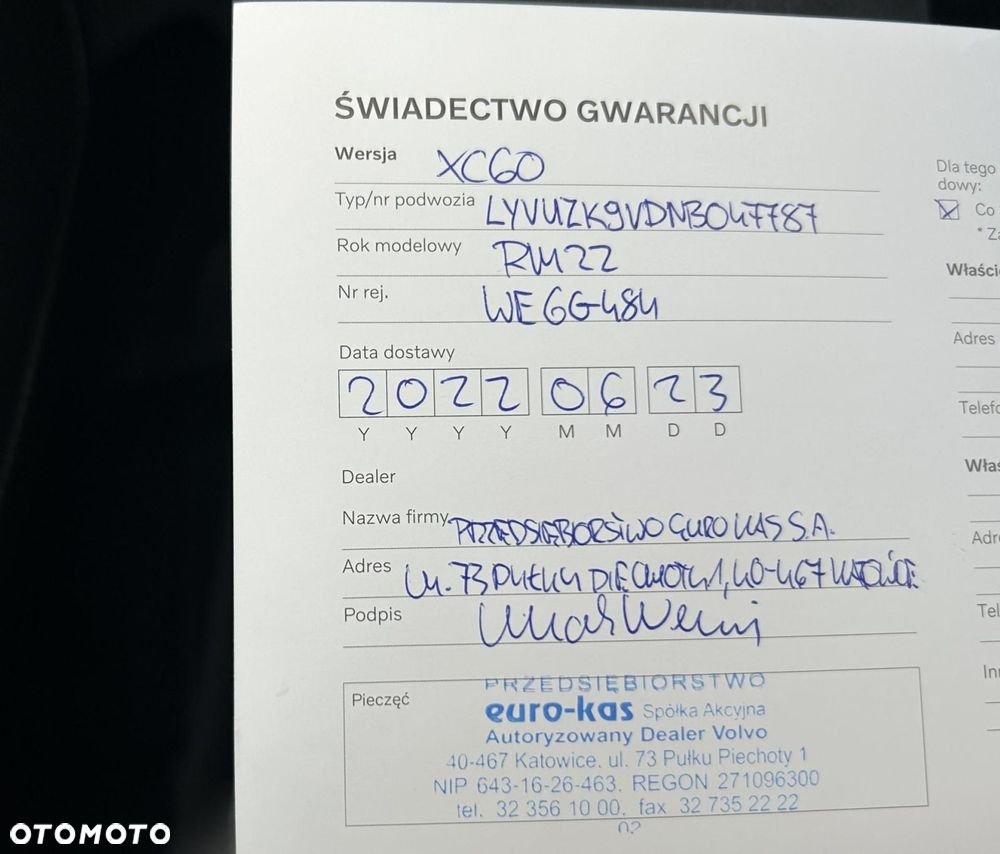 ŚWIADECTWO GWARANCJI
Wersja XC60
Typ/nr podwozia LYVUZK9VDNB047787
Rok modelowy RM22
Nr rej. WE6G484
Data dostawy
2022 06 23
Y Y Y Y M M D D
Dealer
Nazwa firmy PRZEDSIĘBORSTWO EURO KAS S.A.
Adres UL. 73 PUŁKU PIECHOTY 1, 40-467 KATOWICE
Podpis
Pieczęć
PRZEDSIĘBIORSTWO
euro-kas Spółka Akcyjna
Autoryzowany Dealer Volvo
40-467 Katowice, ul. 73 Pułku Piechoty 1
NIP 643-16-26-463, REGON 271096300
tel. 32 356 10 00, fax 32 735 22 22
02
Dla tego
dowy:
Co
Adres
Tel
OTOMOTO